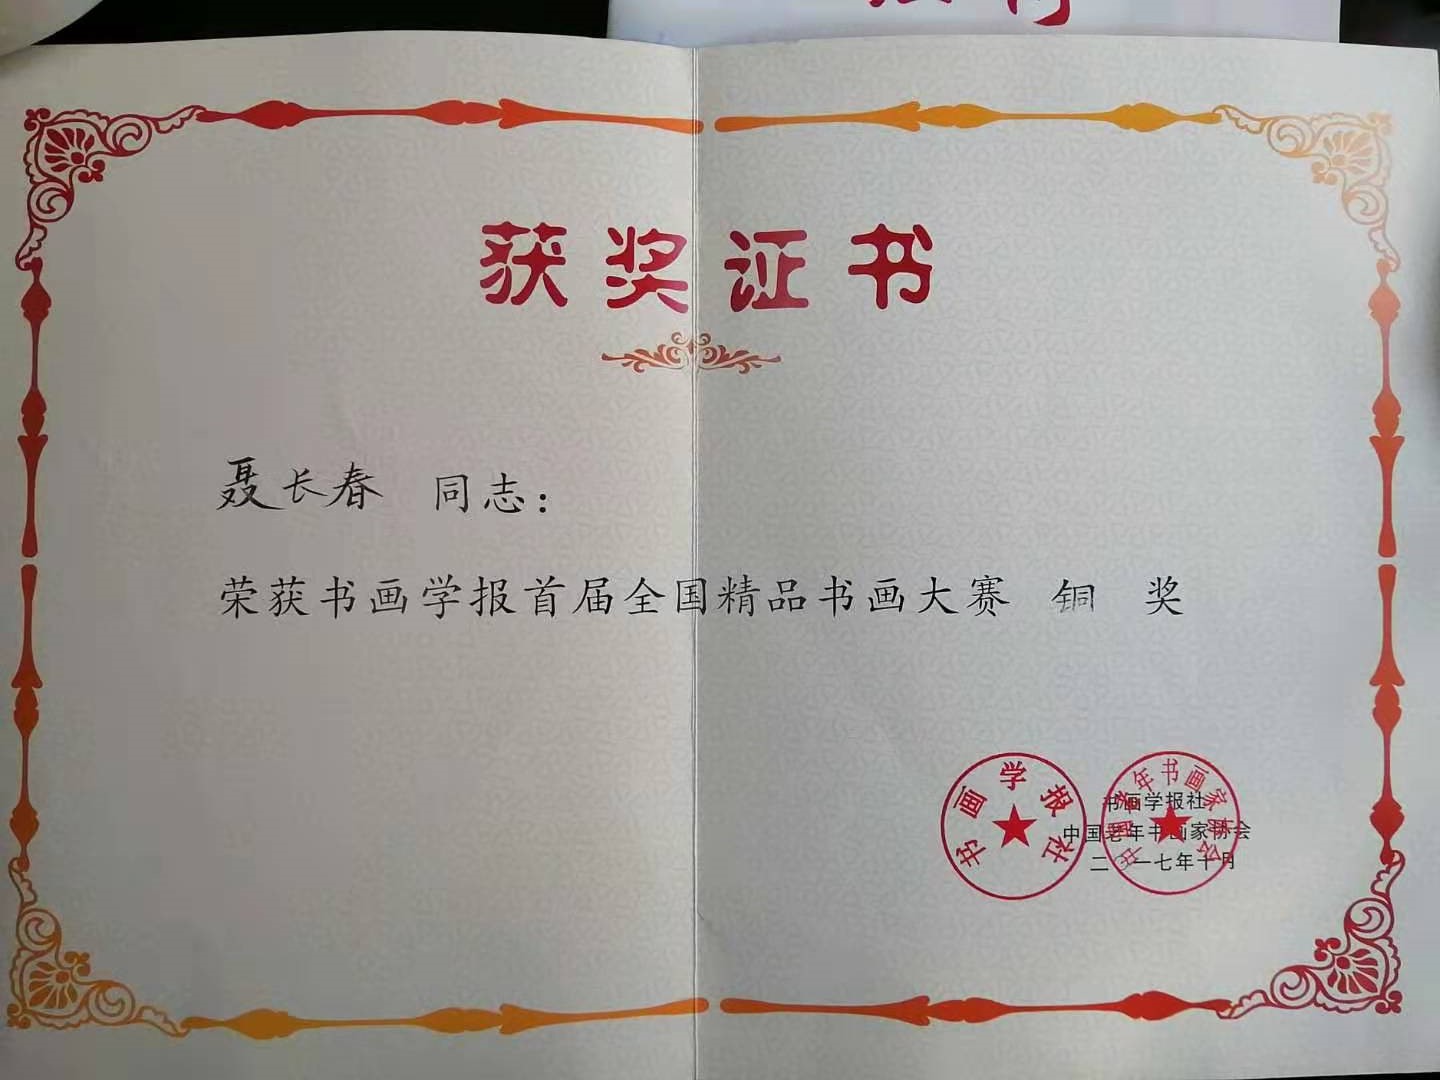 获奖证书
聂长春 同志：
荣获书画学报首届全国精品书画大赛 铜 奖
书画学报社
中国老年书画家协会
书画学报社
中国老年书画家协会
二〇一七年十月